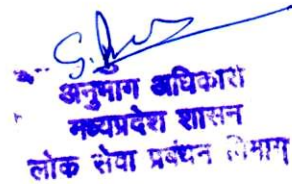 अनुभाग अधिकारी
मध्यप्रदेश शासन
लोक सेवा प्रबंधन विभाग